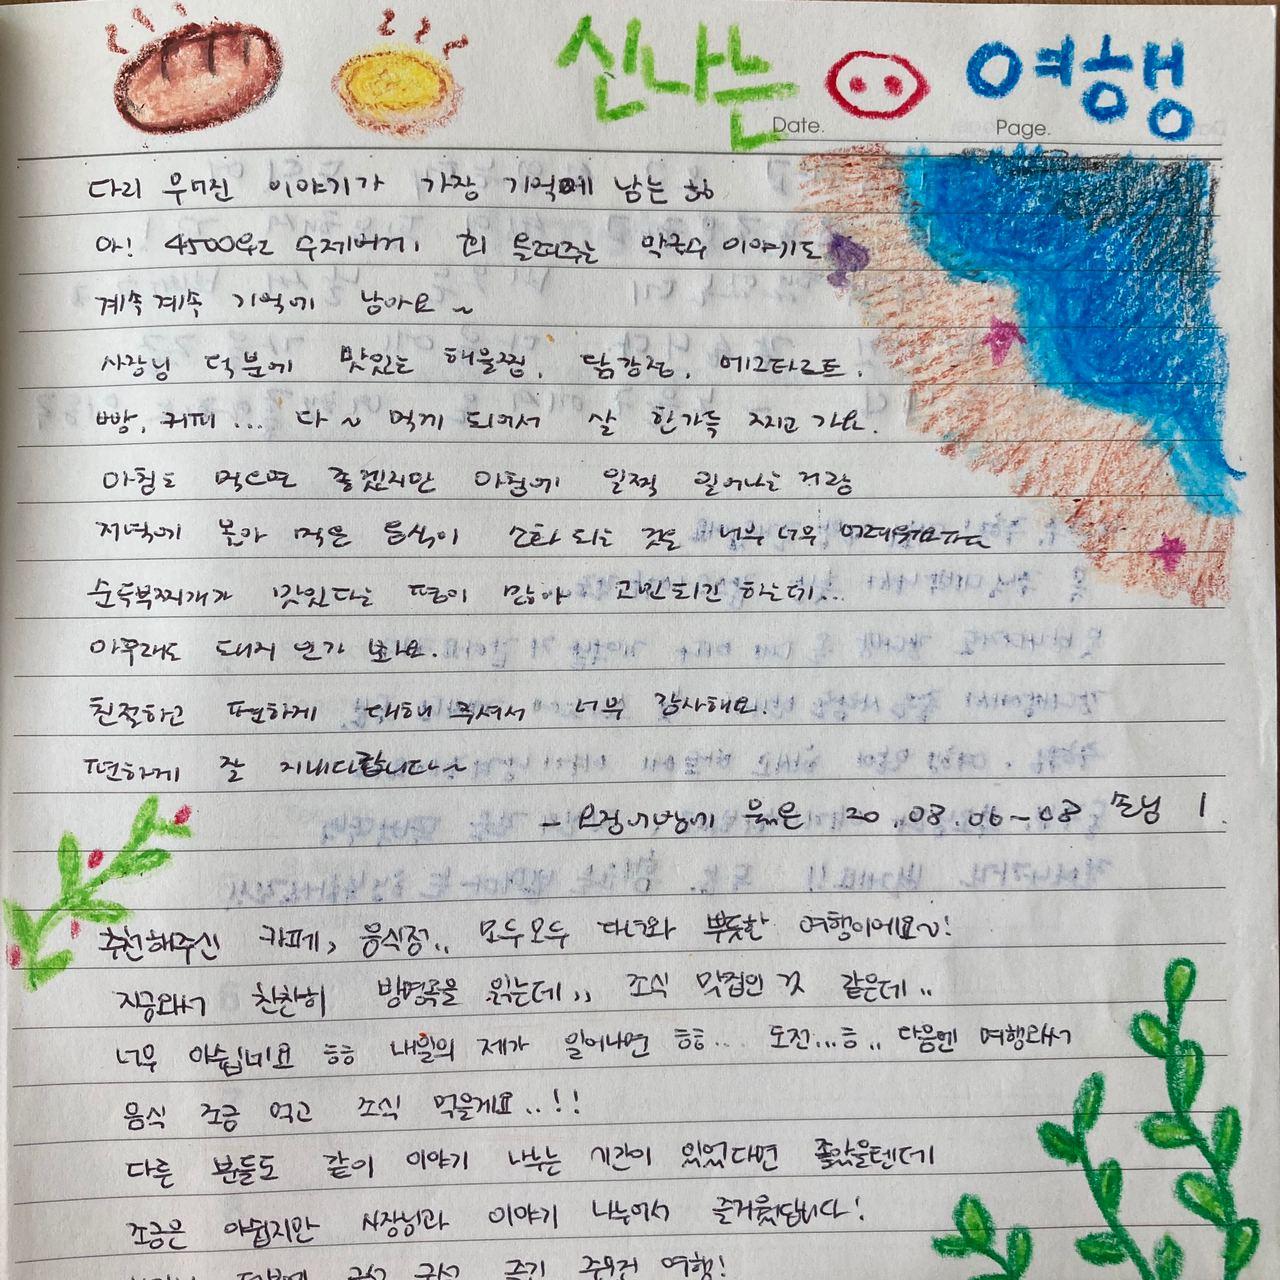 신나는 여행
Date.
Page.
다리 무너진 이야기가 가장 기억에 남는
아! 4500원 수제버거 회 올려주는 막국수 이야기도
계속 계속 기억에 남아요~
사장님 덕분에 맛있는 해물찜, 닭강정, 에그타르트,
빵, 커피... 다~ 먹게 되어서 살 한가득 찌고 가요.
아침도 먹으면 좋겠지만 아침에 일찍 일어나는 거랑
저녁에 몰아 먹은 음식이 소화 되는 것은 너무 너무 어려워요
순두부찌개가 맛있다는 평이 많아 고민하긴 하는데...
아무래도 돼지 인가 봐요.
친절하고 편하게 대해 주셔서 너무 감사해요.
편하게 잘 지내다 갑니다~
- 묵은 20.08.06~08 손님 1.
추천해주신 카페, 음식점.. 모두모두 다녀와 뿌듯한 여행이에요~!
지금와서 찬찬히 방명록을 읽는데,, 조식 맛집인 것 같은데..
너무 아쉽네요 ㅎㅎ 내일의 제가 일어나면 ㅎㅎ... 도전...ㅎ.. 다음엔 여행와서
음식 조금 먹고 조식 먹을게요..!!
다른 분들도 같이 이야기 나누는 시간이 있었다면 좋았을텐데
조금은 아쉽지만 사장님과 이야기 나누어서 즐거웠답니다!
덕분에 구석 구석 즐긴 여행!